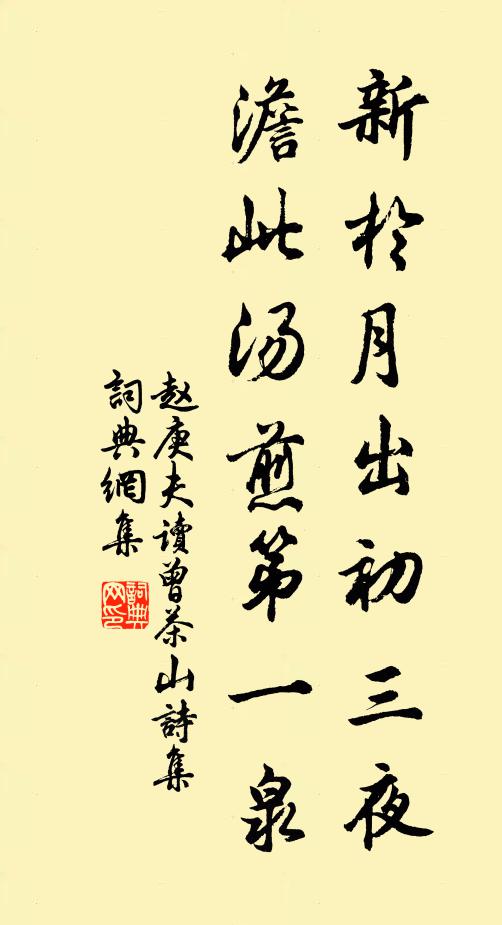 新於月出初三夜
澹此汤煎第一泉
赵庚夫讀曾茶山詩集
詞典網集
詞典網印